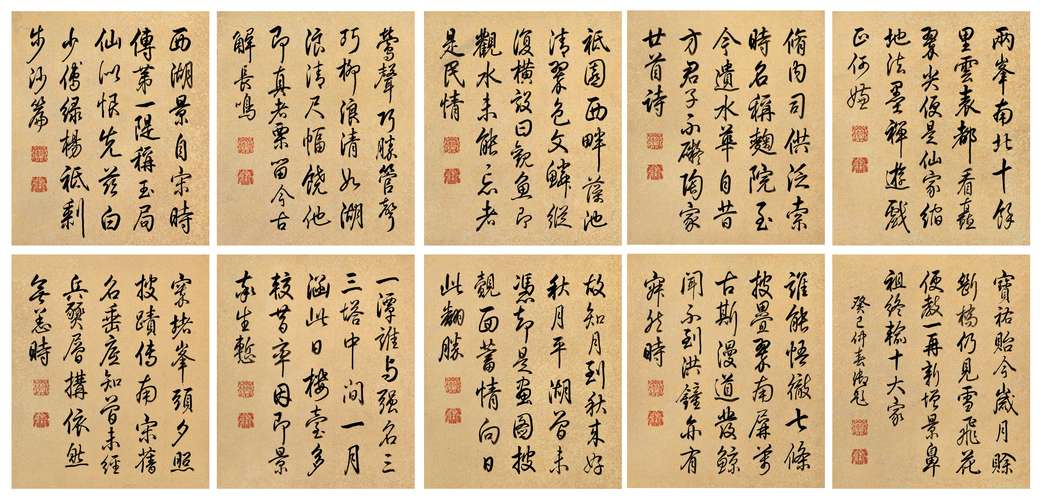 西湖景自宋時
傳第一隄稱玉局
仙似恨先茲白
少傅綠楊祗剩
步沙篇
鶯聲巧勝管聲
巧柳浪清如湖
浪清尺幅饒他
即真者栗留今古
解長鳴
祗園西畔藻池
清翠色文鱗縱
復橫設曰觀魚即
觀水未能忘者
是民情
脩內司供泛索
時名稱麴院至
今遺水華自昔
方君子不礙陶家
廿首詩
兩峯南北十餘
里雲表都看矗
翠尖便是仙家縮
地法墨禪遊戲
正何嫌
窣堵峯頭夕照
披蹟傳南宋舊
名垂應知曾未經
兵燹層構依然
無恙時
一潭誰与强名三
三塔中間一月
涵此日樓臺多
較昔率因即景
牽生慙
故知月到秋來好
秋月平湖曾未
憑却是畫圖披
覿面蓄情向日
此翻勝
誰能悟徹七條
披疊翠南屏萬
古斯漫道發鯨
聞不到洪鐘亦有
寂然時
寶祐貽今歲月賒
斷橋仍見雪飛花
便教一再新增景鼻
祖終輸十大家
癸巳仲春御筆